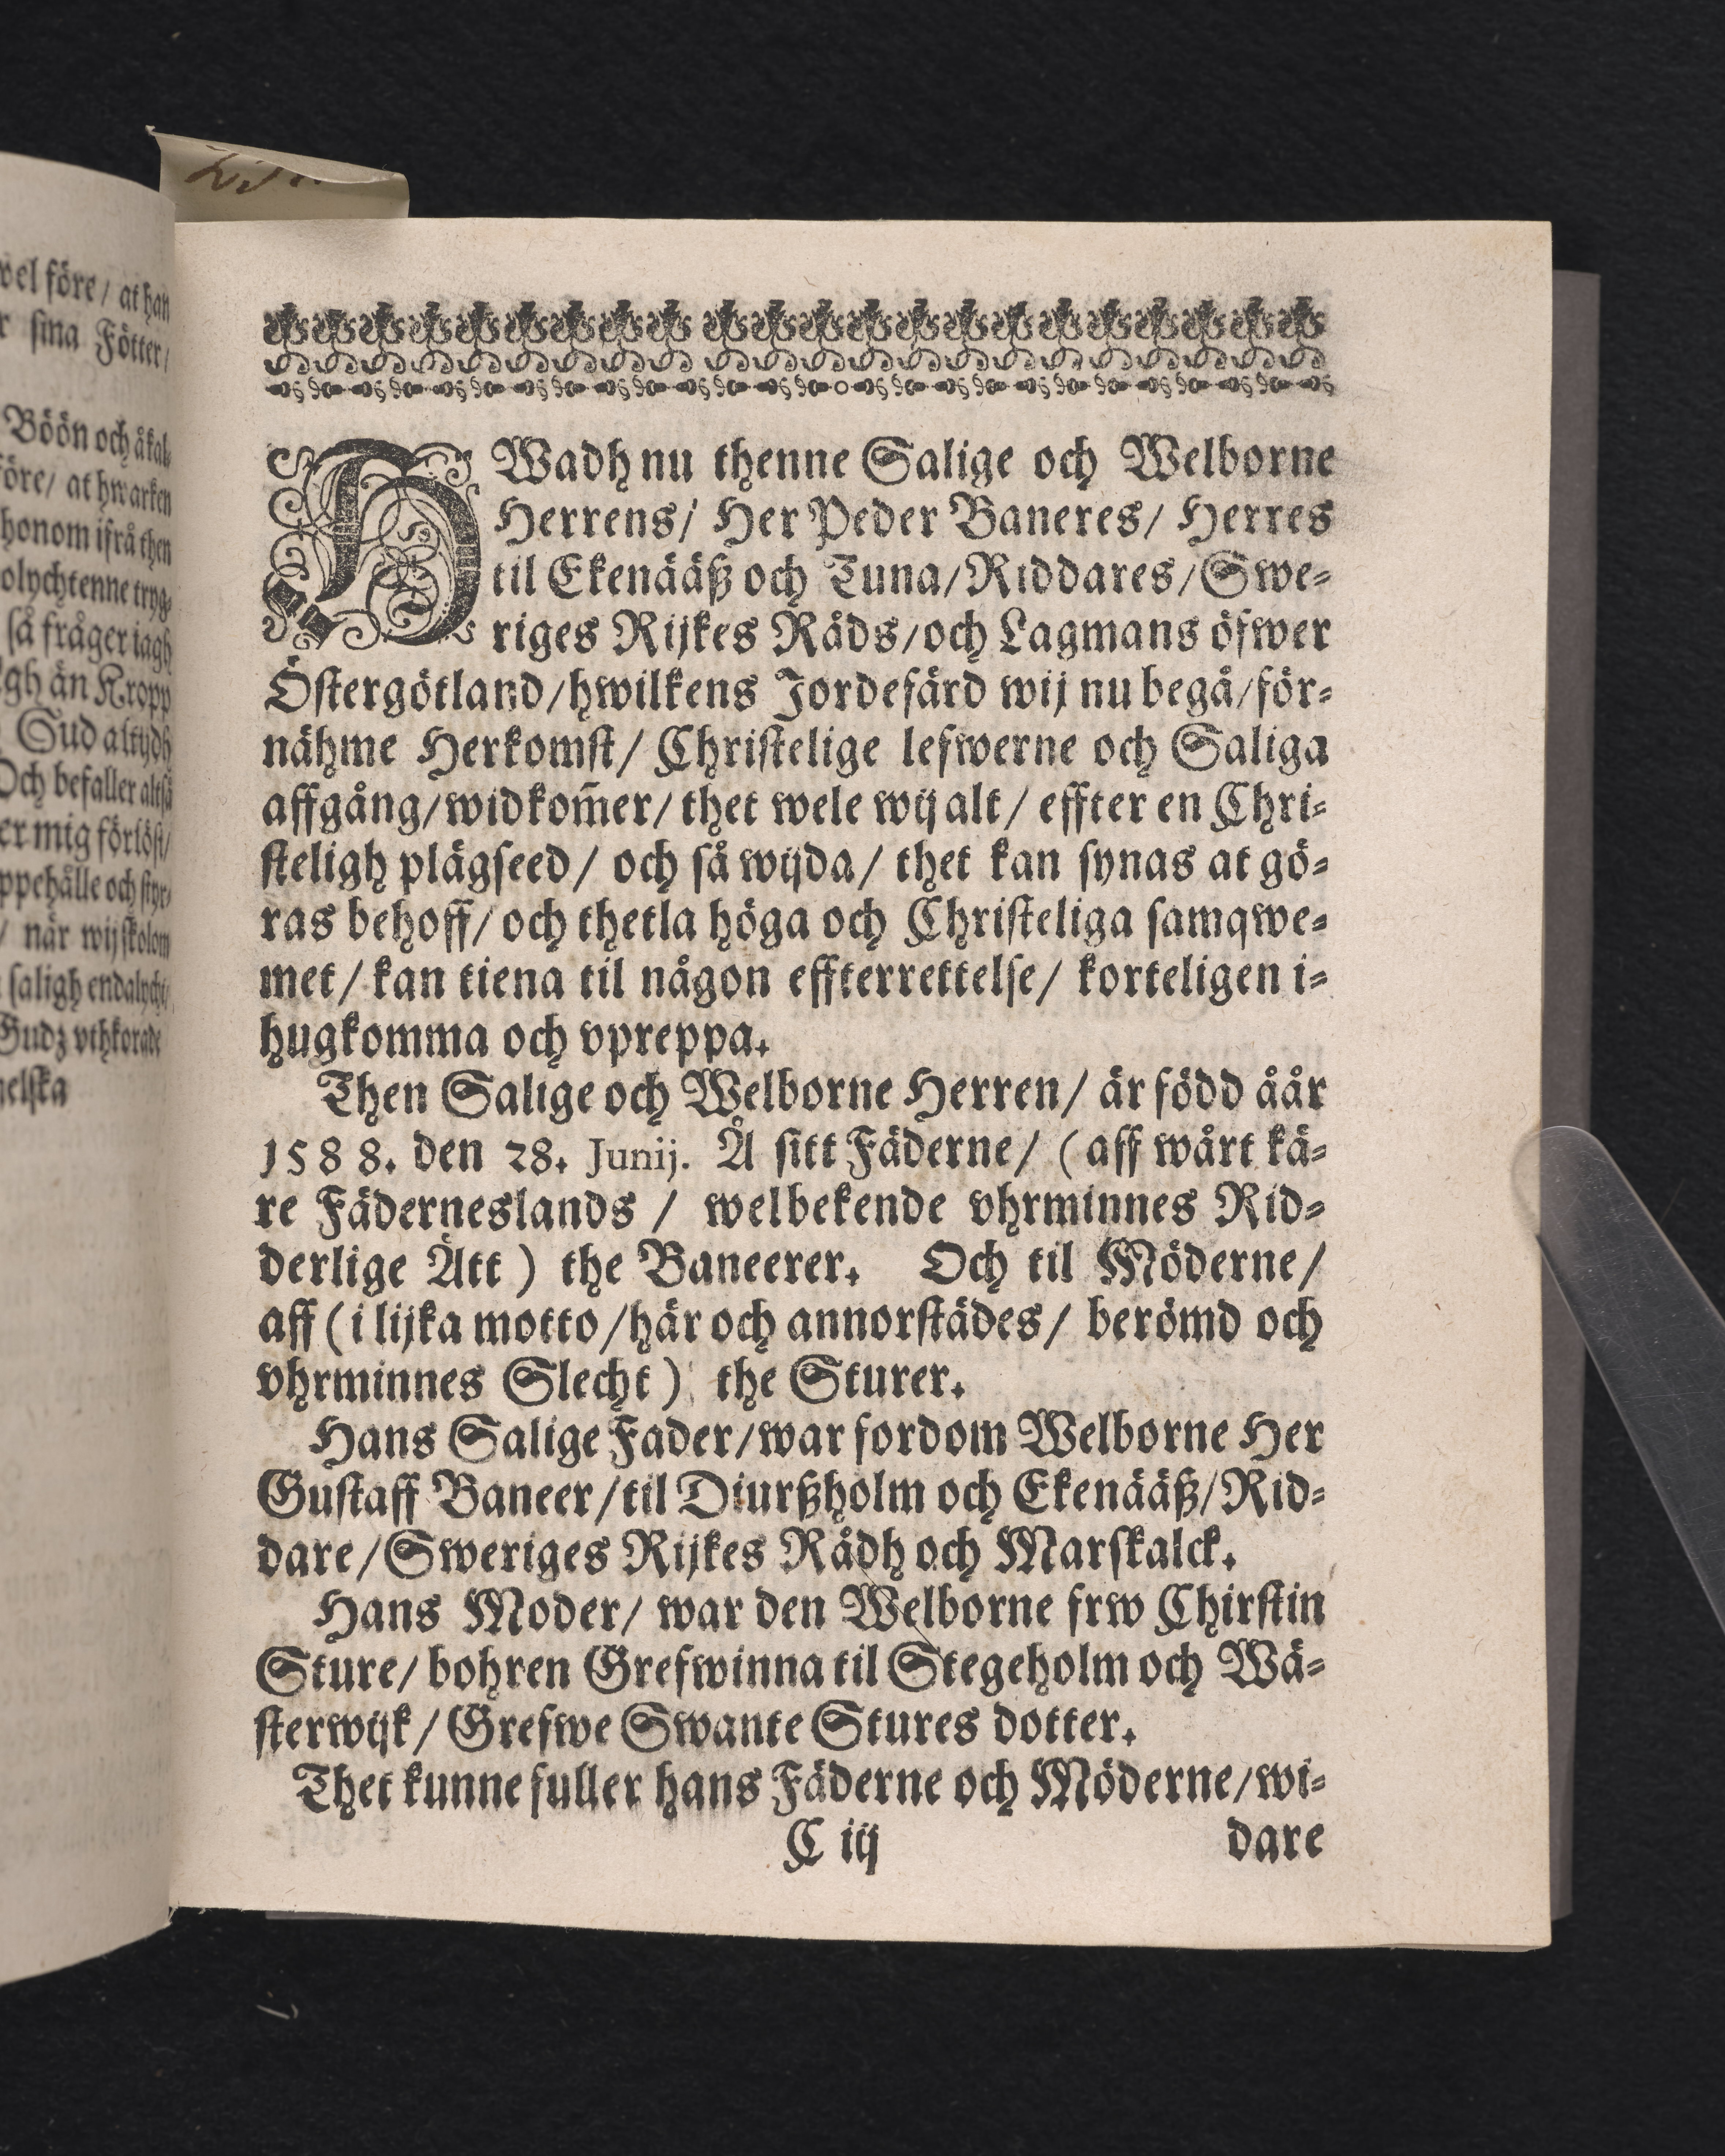 vel före / at han
sina Fötter /
Böön och åkal-
före / at hwarken
honom ifrå then
så fråger iagh
än Kropp
Gud altijdh
Och befaller altså
er mig förlöst /
ppehälle och styr-
/ när wij skolom
saligh endalycht /
Gudz vthkorade
melska
HWadh nu thenne Salige och Welborne
Herrens / Her Peder Baneres / Herres
til Ekenääß och Tuna / Riddares / Swe-
riges Rijkes Råds / och Lagmans öfwer
Östergötland / hwilkens Jordefärd wij nu begå / för-
nähme Herkomst / Christelige lefwerne och Saliga
affgång / widkom̃er / thet wele wij alt / effter en Chri-
steligh plägseed / och så wijda / thet kan synas at gö-
ras behoff / och thetla höga och Christeliga samqwe-
met / kan tiena til någon effterrettelse / korteligen i-
hugkomma och vpreppa.
Then Salige och Welborne Herren / är född åår
1588. den 28. Junij. Å sitt Fäderne / (aff wårt kä-
re Fäderneslands / welbekende vhrminnes Rid-
derlige Ätt) the Baneerer. Och til Möderne /
aff (i lijka motto / här och annorstädes / berömd och
vhrminnes Slecht) the Sturer.
Hans Salige Fader / war fordom Welborne Her
Gustaff Baneer / til Diurßholm och Ekenääß / Rid-
dare / Sweriges Rijkes Rådh och Marskalck.
Hans Moder / war den Welborne frw Chirstin
Sture / bohren Grefwinna til Stegeholm och Wä-
sterwijk / Grefwe Swante Stures dotter.
Thet kunne fuller hans Fäderne och Möderne / wi-
C iij dare